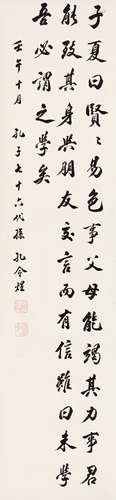 子夏曰賢賢易色事父母能竭其力事君
能致其身與朋友交言而有信雖曰未學
吾必謂之學矣
壬午十月 孔子七十六代孫孔令煜